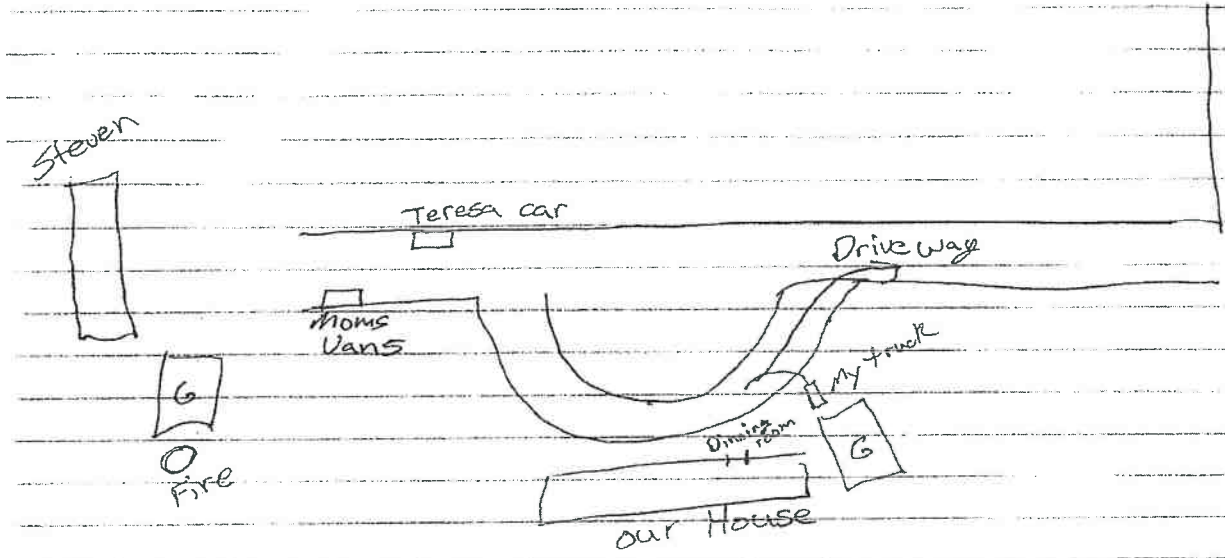 Steven
Teresa car
Drive way
Moms
Vans
My truck
G
Dinning
room
G
Fire
our House